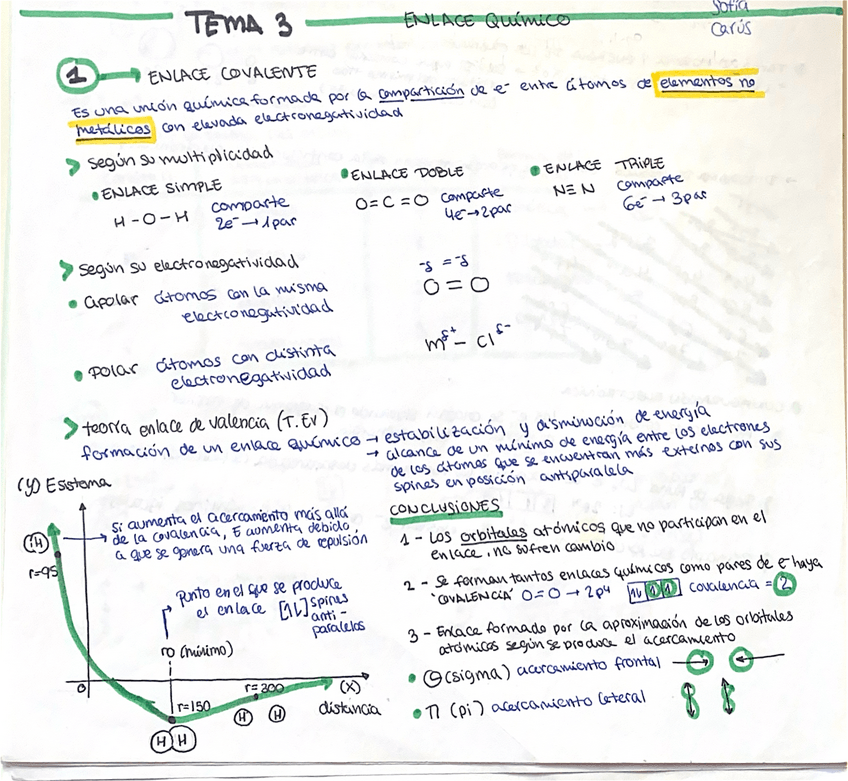 TEMA 3 ENLACE QUÍMICO
Sofía
Carús
1 → ENLACE COVALENTE
Es una unión química formada por la compartición de e⁻ entre átomos de elementos no
metálicos con elevada electronegatividad
> según su multiplicidad
• ENLACE SIMPLE
H-O-H
comparte
2e⁻ → 1par
• ENLACE DOBLE
O=C=O
comparte
4e⁻→2par
• ENLACE TRIPLE
N≡N
comparte
6e⁻ → 3par
> según su electronegatividad
• apolar átomos con la misma
electronegatividad
-δ = -δ
O=O
• polar átomos con distinta
electronegatividad
m^δ+ - Cl^δ-
> teoría enlace de valencia (T.EV)
formación de un enlace químico → estabilización y disminución de energía
→ alcance de un mínimo de energía entre los electrones
de los átomos que se encuentran más externos con sus
spines en posición antiparalela
(y) Esistema
si aumenta el acercamiento más allá
de la covalencia, E aumenta debido
a que se genera una fuerza de repulsión
r=95
punto en el que se produce
el enlace [1↓] spines
anti-
paralelos
r0 (mínimo)
0
r=150
r=300
(x)
distancia
H H
H H
CONCLUSIONES
1 - Los orbitales atómicos que no participan en el
enlace, no sufren cambio
2 - Se forman tantos enlaces químicos como pares de e⁻ haya
'COVALENCIA' O=O → 2p⁴ [1↓][1][1] covalencia = 2
3 - Enlace formado por la aproximación de los orbitales
atómicos según se produce el acercamiento
• Θ (sigma) acercamiento frontal
• π (pi) acercamiento lateral